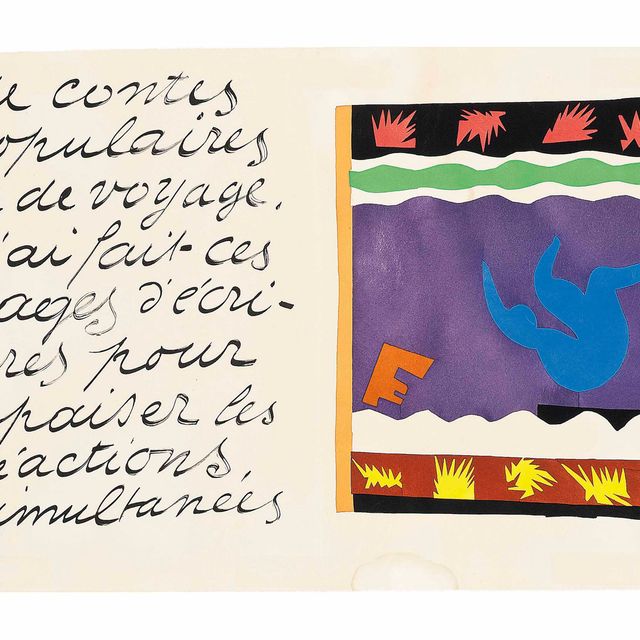 de contes
opulaires
de voyage.
'ai fait ces
ages d'écri-
res pour
paiser les
éactions
simultanées